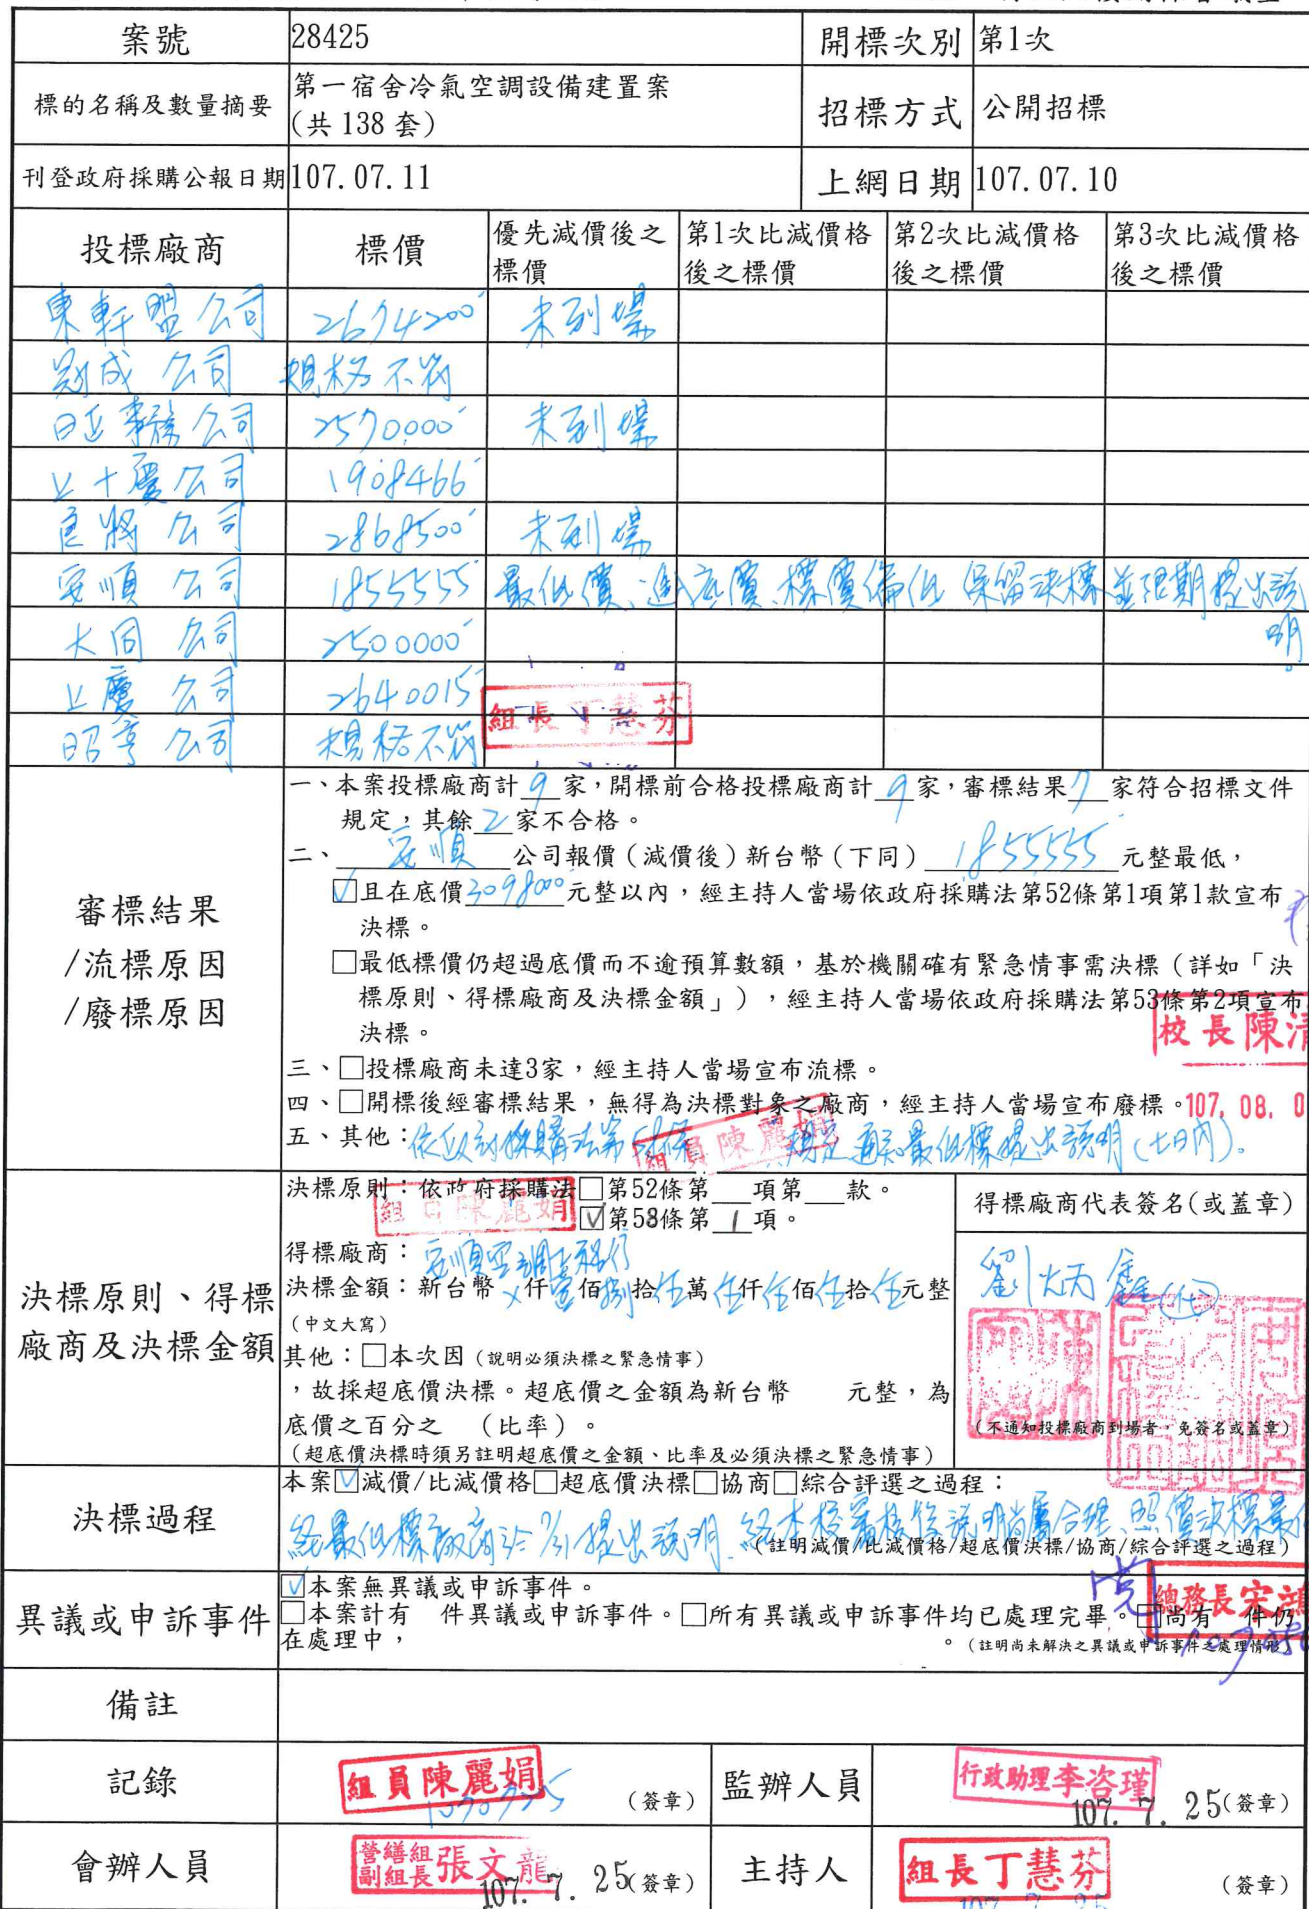 案號 28425 開標次別 第1次
標的名稱及數量摘要 第一宿舍冷氣空調設備建置案
(共 138 套) 招標方式 公開招標
刊登政府採購公報日期 107.07.11 上網日期 107.07.10
投標廠商 標價 優先減價後之標價 第1次比減價格後之標價 第2次比減價格後之標價 第3次比減價格後之標價
東軒盟公司 2674200 未到場
冠成公司 規格不符
2570000 未到場
公司 1908466
公司 2868500 未到場
安順公司 1855555 最低價、進入底價、標價偏低 保留決標並限期提出說明。
大同公司 2500000
上慶公司 2640015
組長丁慧芬
昭亨公司 規格不符
審標結果
/流標原因
/廢標原因
一、本案投標廠商計 9 家,開標前合格投標廠商計 9 家,審標結果 7 家符合招標文件
規定,其餘 2 家不合格。
二、 安順 公司報價(減價後)新台幣(下同) 1855555 元整最低,
☑且在底價3098000元整以內,經主持人當場依政府採購法第52條第1項第1款宣布
決標。
□最低標價仍超過底價而不逾預算數額,基於機關確有緊急情事需決標(詳如「決
標原則、得標廠商及決標金額」),經主持人當場依政府採購法第53條第2項宣布
決標。
校長陳清
三、□投標廠商未達3家,經主持人當場宣布流標。
四、□開標後經審標結果,無得為決標對象之廠商,經主持人當場宣布廢標。107. 08. 0
五、其他:依政府採購法第58條規定通知最低標提出說明(七日內)。
組員陳麗娟
決標原則、得標
廠商及決標金額
決標原則:依政府採購法□第52條第 項第 款。
組員陳麗娟
☑第58條第 1 項。
得標廠商:安順空調
決標金額:新台幣 x 仟壹佰捌拾伍萬伍仟伍佰伍拾伍元整
(中文大寫)
其他:□本次因(說明必須決標之緊急情事)
,故採超底價決標。超底價之金額為新台幣 元整,為
底價之百分之 (比率)。
(超底價決標時須另註明超底價之金額、比率及必須決標之緊急情事)
得標廠商代表簽名(或蓋章)
劉炳鑫(代)
(不通知投標廠商到場者,免簽名或蓋章)
決標過程
本案☑減價/比減價格□超底價決標□協商□綜合評選之過程:
經最低標廠商於7/31提出說明、經本校審核後說明尚屬合理、照價決標最低
(註明減價/比減價格/超底價決標/協商/綜合評選之過程)
異議或申訴事件
☑本案無異議或申訴事件。
□本案計有 件異議或申訴事件。□所有異議或申訴事件均已處理完畢。□尚有 件仍
在處理中, 。(註明尚未解決之異議或申訴事件之處理情形)
總務長宋鴻
備註
記錄 組員陳麗娟 1070725 (簽章) 監辦人員 行政助理李咨瑾 107. 7. 25(簽章)
會辦人員 營繕組副組長張文龍 107. 7. 25(簽章) 主持人 組長丁慧芬 (簽章)